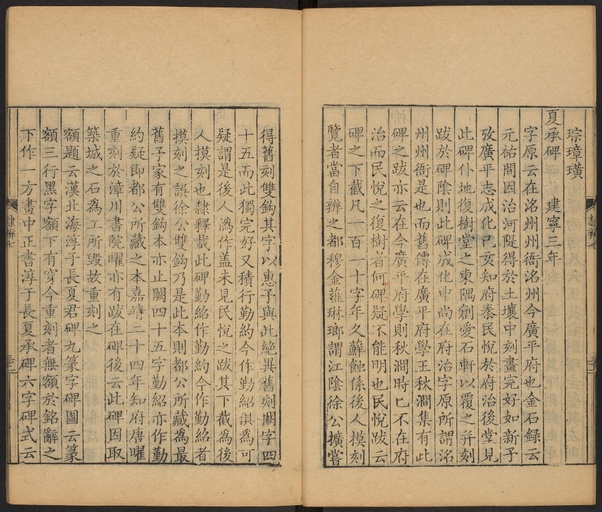 琮璋璜
夏承碑 建寧三年
字原云在洺州州衙洺州今廣平府也金石録云
元祐間因治河隄得於土壤中刻畫完好如新予
攷廣平志成化己亥知府秦民悅於府治後堂見
此碑仆地復樹堂之東隅創愛石軒以覆之并刻
跋於碑陰則此碑成化中尚在府治字原所謂洺
州州衙是也而舊儲在廣平府學王秋澗集有此
碑之跋亦云在今廣平府學則秋澗時已不在府
治而民悅之復樹者何碑疑不能明也民悅跋云
碑之下截凡一百一十字年久蘚蝕係後人摸刻
覽者當自辨之都穆金薤琳瑯謂江陰徐公擴嘗
得舊刻雙鈎其字以惠予與此絶異舊刻闕字四
十五而此獨完好又積行勤約今作勤紹淇為可
疑謂是後人僞作盖未見民悅之跋其下截為後
人摸刻也隸釋載此碑勤紹作勤約今作勤紹者
摸刻之誤徐公雙鈎乃是此本則都公所藏為最
舊予家有雙鈎本亦止闕四十五字勤紹亦作勤
約疑即都公所藏之本嘉靖二十四年知府唐曜
重刻於漳川書院曜亦有跋在碑後云此碑因取
築城之石為工所毀故重刻之
額題云漢北海淳于長夏君碑九篆字碑圖云篆
額三行黑字額下有穿今重刻者無額於銘辭之
下作一方書中正書淳于長夏承碑六字碑式云